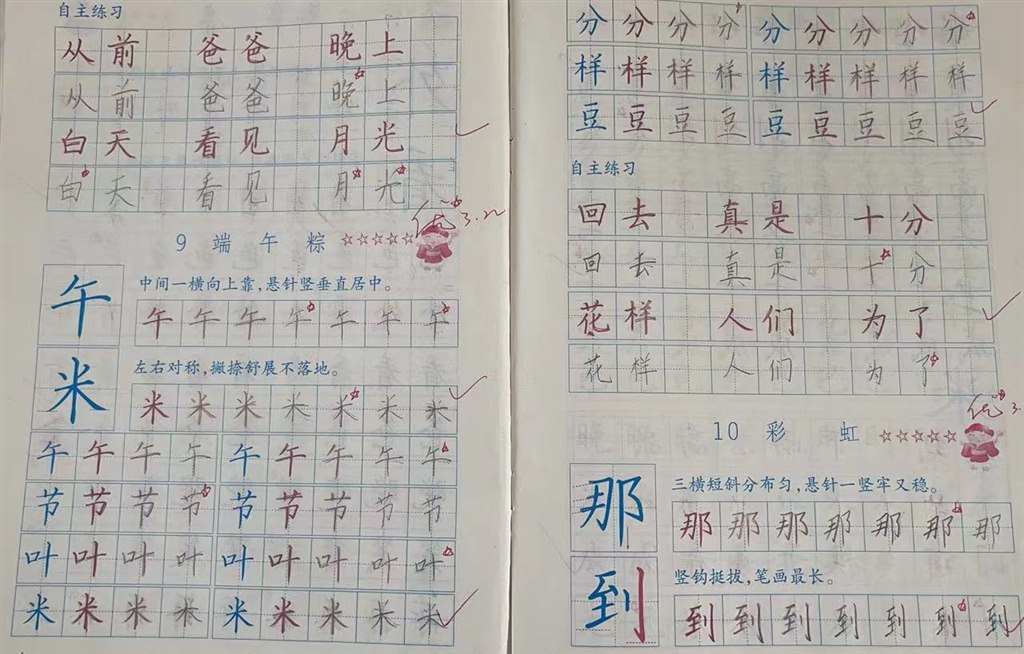 自主练习
从前 爸爸 晚上
从前 爸爸 晚上
白天 看见 月光
白天 看见 月光
优 3.22
9 端午粽 ☆☆☆☆☆
午
中间一横向上靠，悬针竖垂直居中。
午午午午午午午
米
左右对称，撇捺舒展不落地。
米米米米米米米
午午午午 午午午午午
节节节节 节节节节节
叶叶叶叶 叶叶叶叶叶
米米米米 米米米米米
分分分分 分分分分分
样样样样 样样样样样
豆豆豆豆 豆豆豆豆豆
自主练习
回去 真是 十分
回去 真是 十分
花样 人们 为了
花样 人们 为了
优 3.
10 彩虹 ☆☆☆☆☆
那
三横短斜分布匀，悬针一竖牢又稳。
那那那那那那那
到
竖钩挺拔，笔画最长。
到到到到到到到